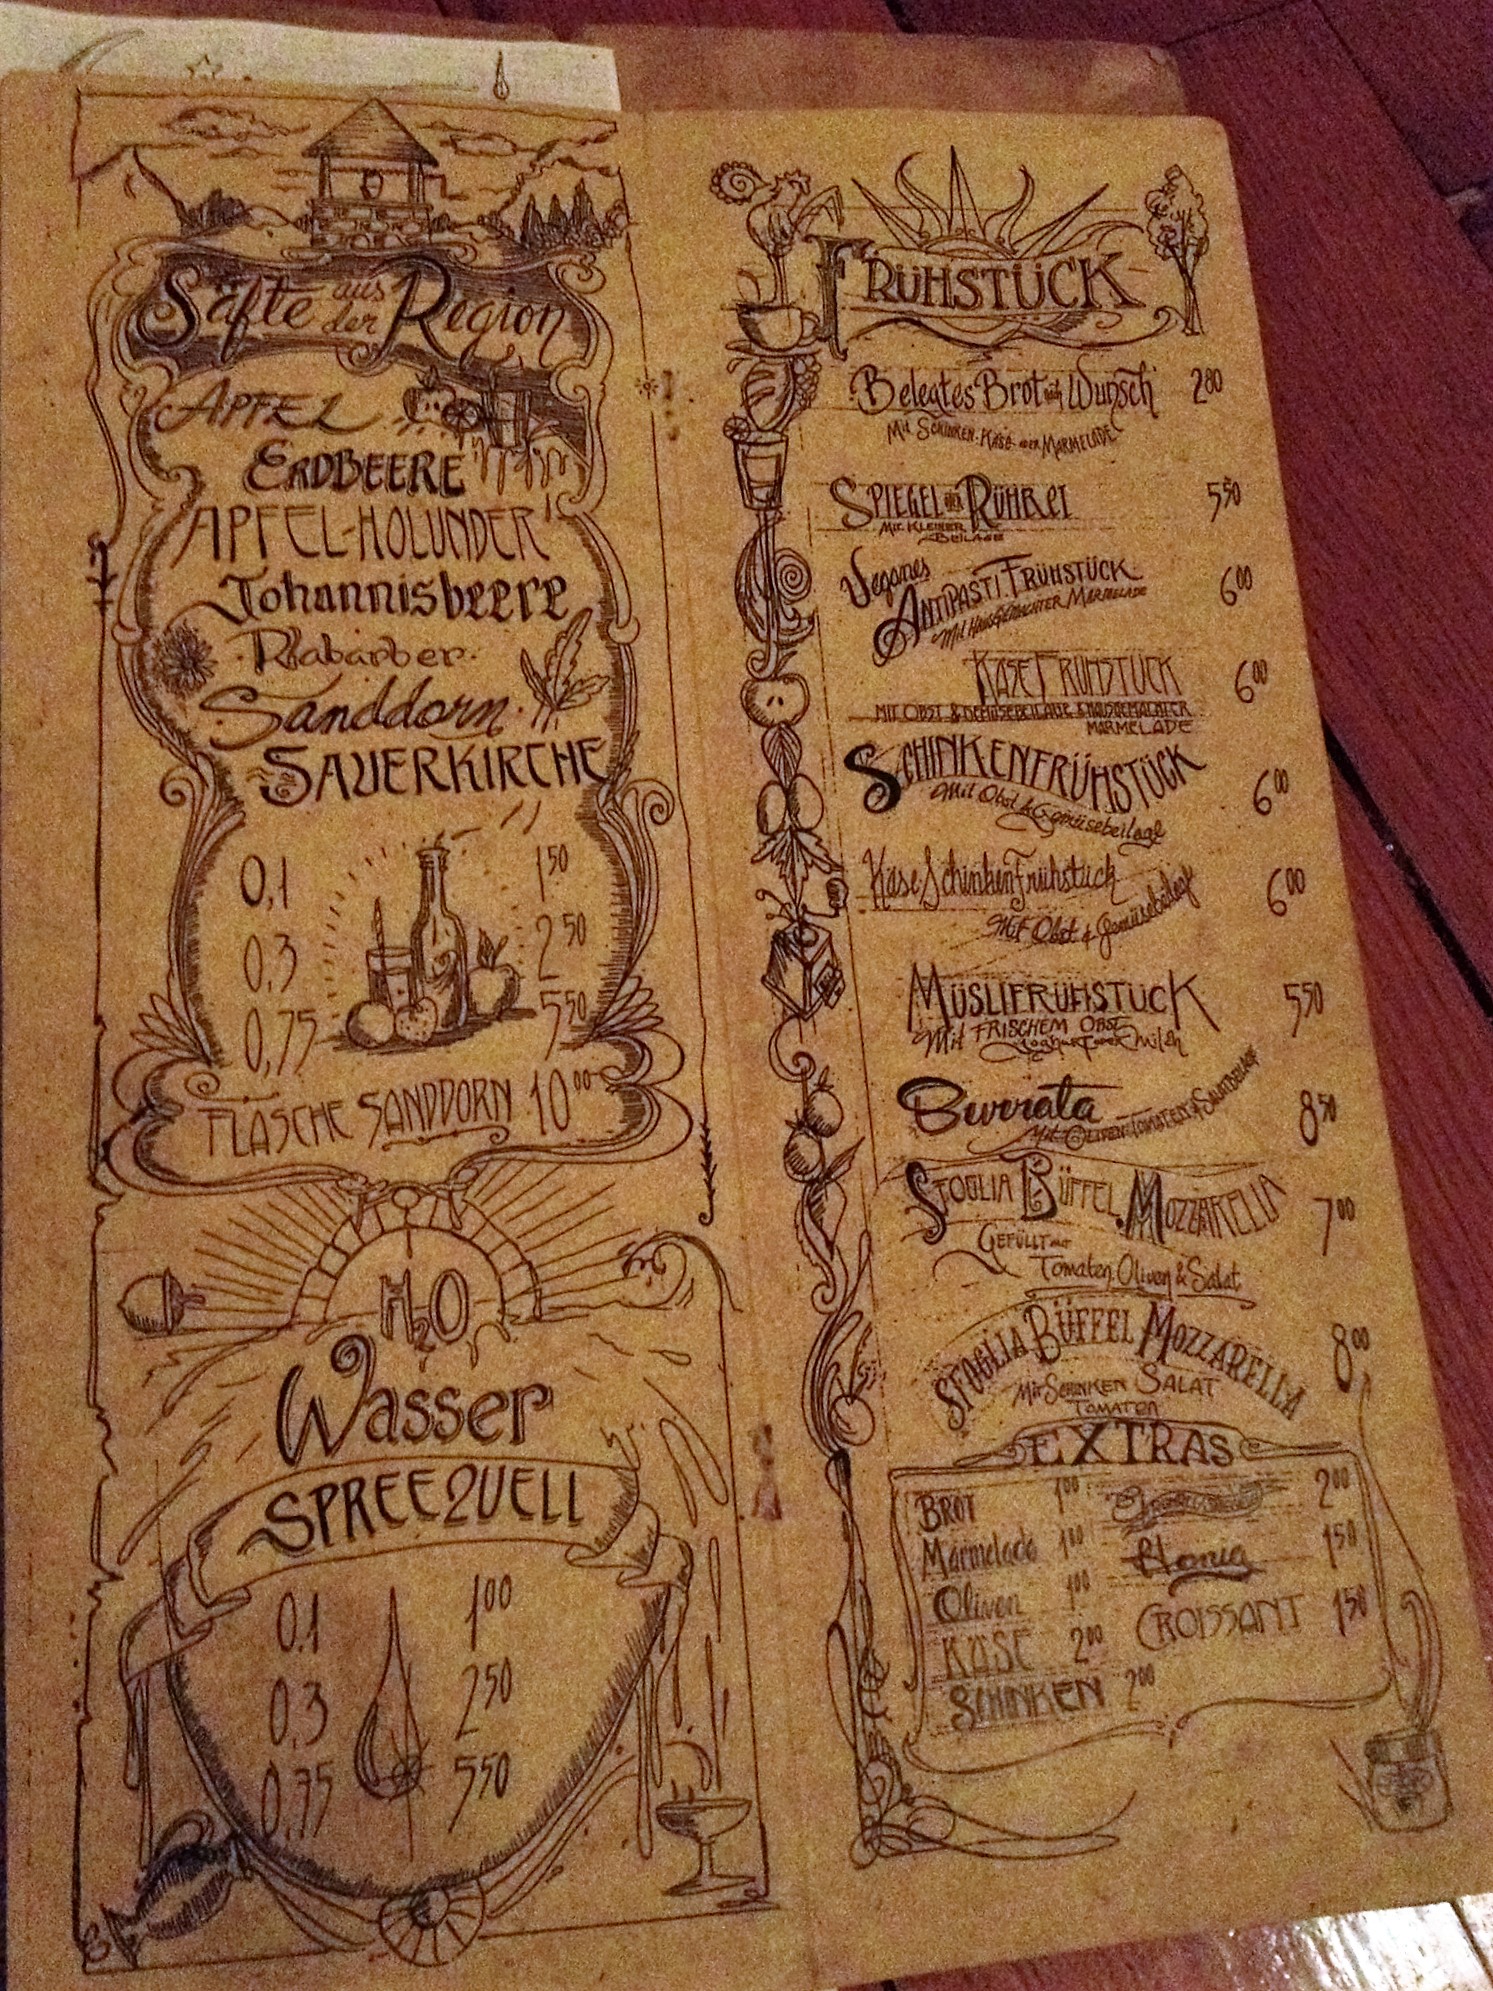 Säfte aus der Region
APFEL
ERDBEERE
APFEL-HOLUNDER
Johannisbeere
Rhabarber
Sanddorn
SAUERKIRCHE
0,1 1 50
0,3 2 50
0,75 5 50
FLASCHE SANDDORN 10 00
H2O
Wasser
SPREEQUELL
0.1 1 00
0.3 2 50
0,75 5 50
FRÜHSTÜCK
Belegtes Brot nach Wunsch 2 80
Mit Schinken-Käse- oder Marmelade
SPIEGEL oder RÜHREI 5 50
Mit kleiner
Beilage
Veganes
ANTIPASTI FRÜHSTÜCK 6 00
Mit Hausgemachter Marmelade
KÄSEFRÜHSTÜCK 6 00
MIT OBST & GEMÜSEBEILAGE & HAUSGEMACHTER
MARMELADE
SCHINKENFRÜHSTÜCK 6 00
Mit Obst & Gemüsebeilage
Käse-Schinken Frühstück 6 00
Mit Obst & Gemüsebeilage
MÜSLIFRÜHSTÜCK 5 50
Mit FRISCHEM OBST
Joghurt oder Milch
Burrata 8 50
Mit Oliven Tomaten & Salatbeilage
SFOGLIA BÜFFEL MOZZARELLA 7 00
GEFÜLLT mit
Tomaten, Oliven & Salat
SFOGLIA BÜFFEL MOZZARELLA 8 00
Mit Schinken SALAT
TOMATEN
EXTRAS
BROT 1 00 2 00
Marmelade 1 00 Honig 1 50
Oliven 1 00 CROISSANT 1 50
KÄSE 2 00
SCHINKEN 2 00